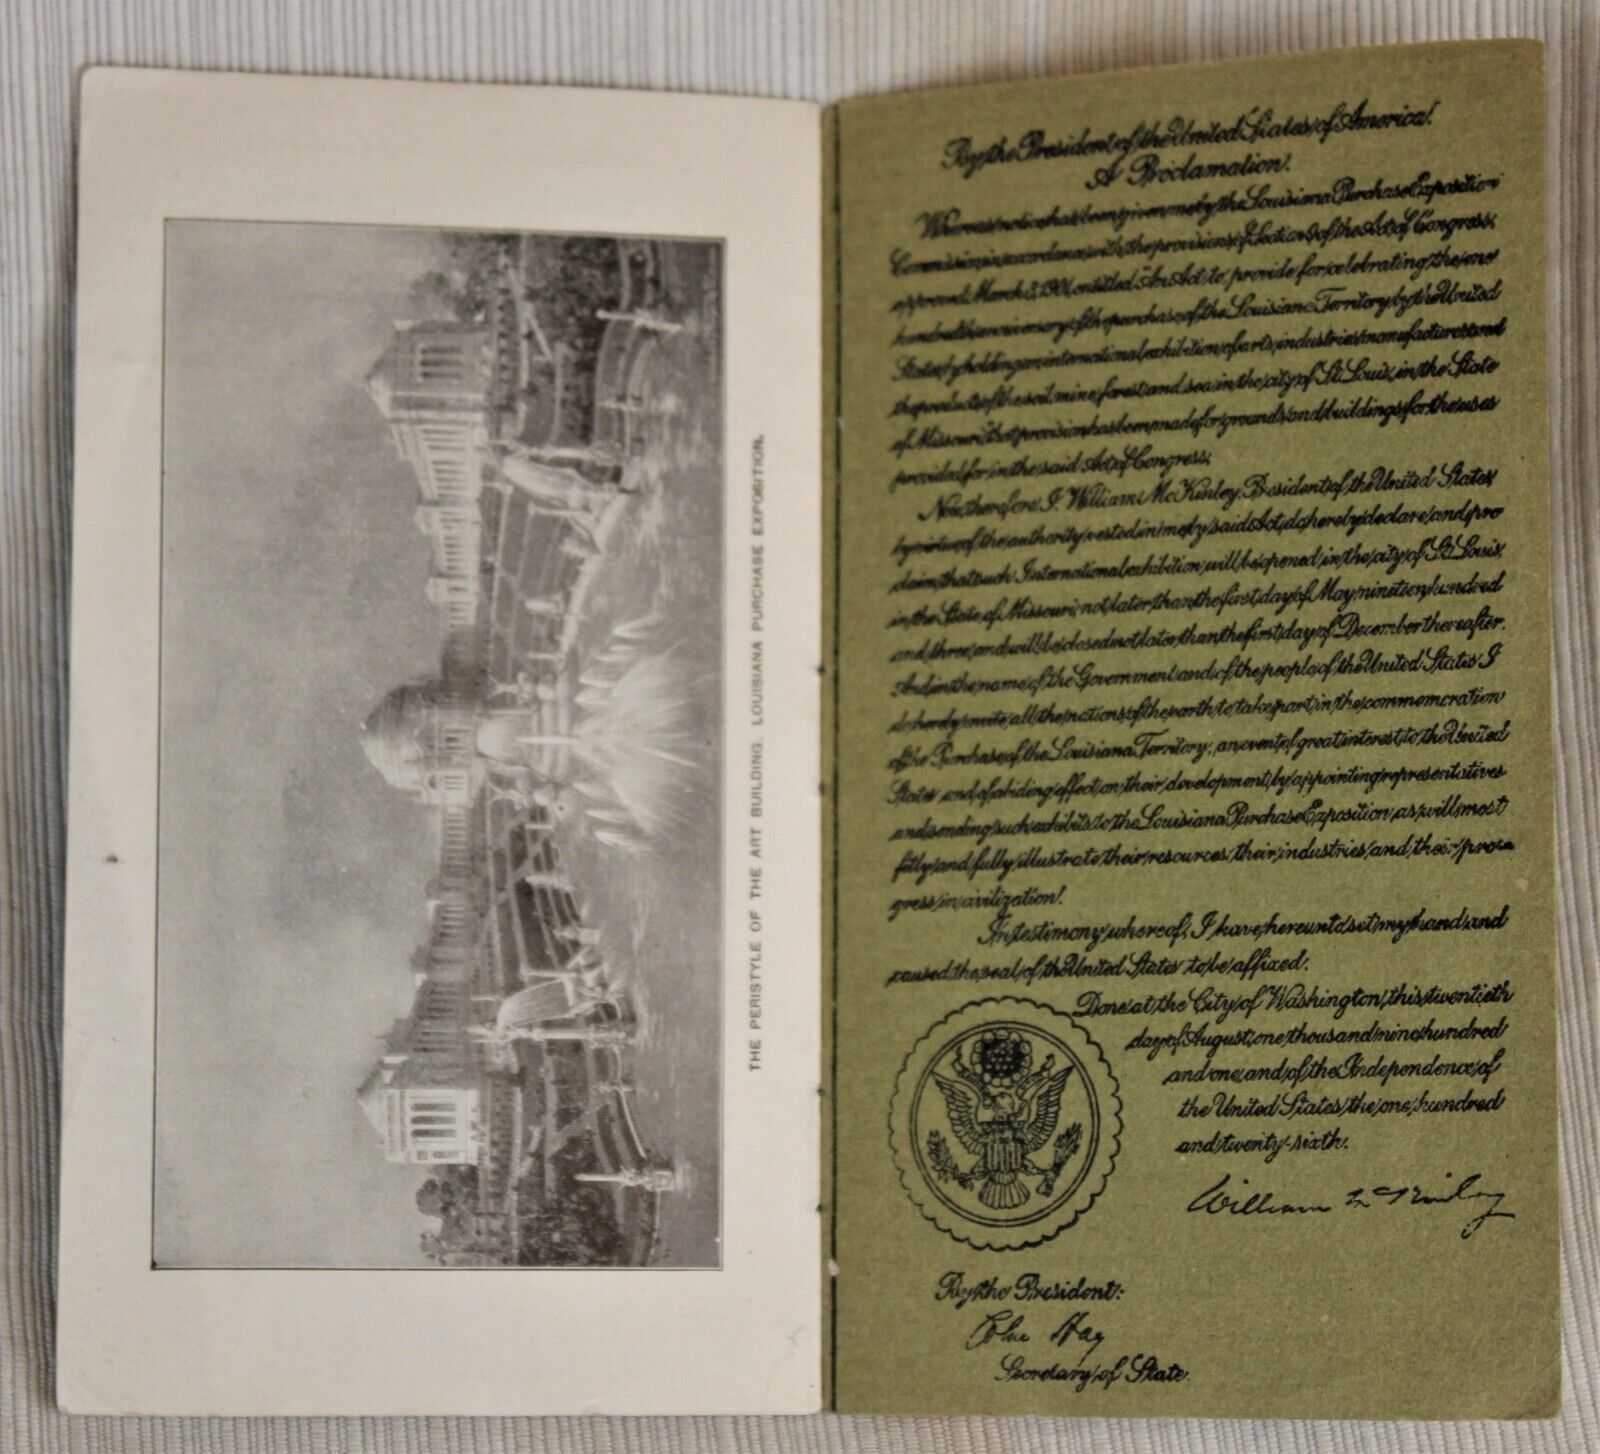 THE PERISTYLE OF THE ART BUILDING. LOUISIANA PURCHASE EXPOSITION.
By the President of the United States of America.
A Proclamation.
Whereas notice has been given me by the Louisiana Purchase Exposition
Commission, in accordance with the provisions of Section 9 of the Act of Congress,
approved March 3, 1901, entitled "An Act to provide for celebrating the one
hundredth anniversary of the purchase of the Louisiana Territory by the United
States, by holding an international exhibition of arts, industries, manufactures, and
the products of the soil, mine, forest and sea in the city of St. Louis, in the State
of Missouri," that provision has been made for grounds and buildings for the uses
provided for in the said Act of Congress;
Now, therefore, I, William McKinley, President of the United States,
by virtue of the authority vested in me by said Act, do hereby declare and pro
claim that such International exhibition will be opened in the city of St. Louis,
in the State of Missouri, not later than the first day of May, nineteen hundred
and three, and will be closed not later than the first day of December thereafter.
And in the name of the Government and of the people of the United States I
do hereby invite all the nations of the earth to take part in the commemoration
of the Purchase of the Louisiana Territory, an event of great interest to the United
States and of abiding effect on their development, by appointing representatives
and sending such exhibits to the Louisiana Purchase Exposition as will most
fitly and fully illustrate their resources, their industries and their pro-
gress in civilization.
In testimony whereof, I have hereunto set my hand and
caused the seal of the United States to be affixed.
Done at the City of Washington, this twentieth
day of August, one thousand nine hundred
and one, and of the Independence of
the United States the one hundred
and twenty-sixth.
William McKinley
By the President:
John Hay
Secretary of State.